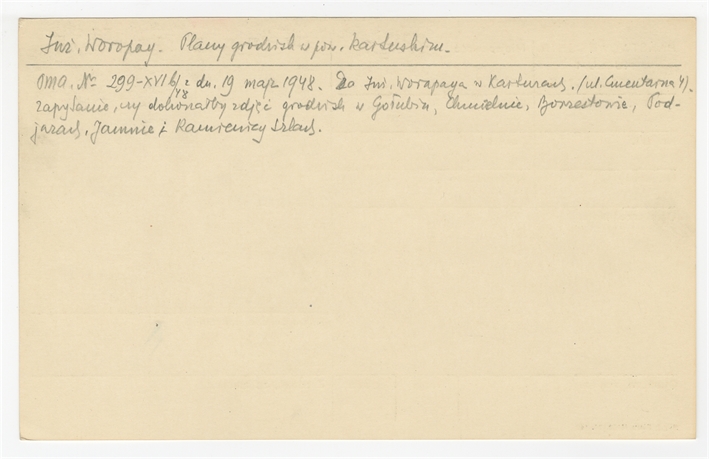 Inż. Woropay. Plany grodzisk w pow. kartuskim.
PMA. No 299-XVI b/2/48 dn. 19 maja 1948. Do Inż. Woropaya w Kartuzach. (ul. Cmentarna 4).
Zapytanie, czy dokonałby zdjęć grodzisk w Gołubiu, Chmielnie, Borzestowie, Pod-
jazach, Jamnie i Kamienicy Szlach.